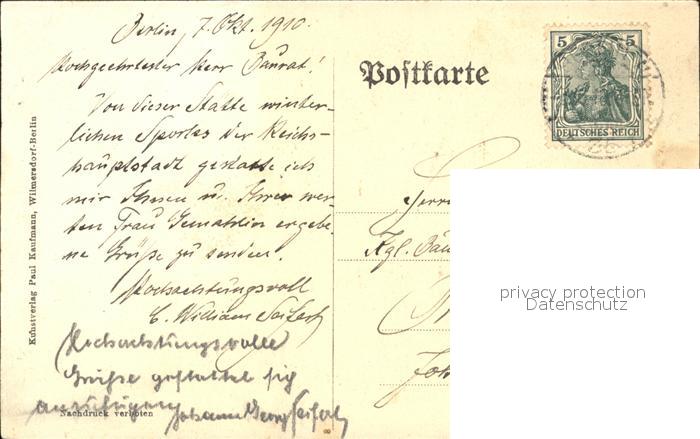 Berlin, 7. Okt. 1910.
Hochgeehrtester Herr Baurat!
Von dieser Stätte winter-
lichen Sportes der Reichs-
hauptstadt gestatte ich
mir Ihnen u. Ihrer wer-
ten Frau Gemahlin ergebe-
ne Grüße zu senden.
Hochachtungsvoll
C. William Seifert
Hochachtungsvolle
Grüße gestattet sich
anzufügen Johann Georg Seifert
Nachdruck verboten
Kunstverlag Paul Kaufmann, Wilmersdorf-Berlin
Postkarte
5 5
DEUTSCHES REICH
Herrn
Kgl. Bau
privacy protection
Datenschutz